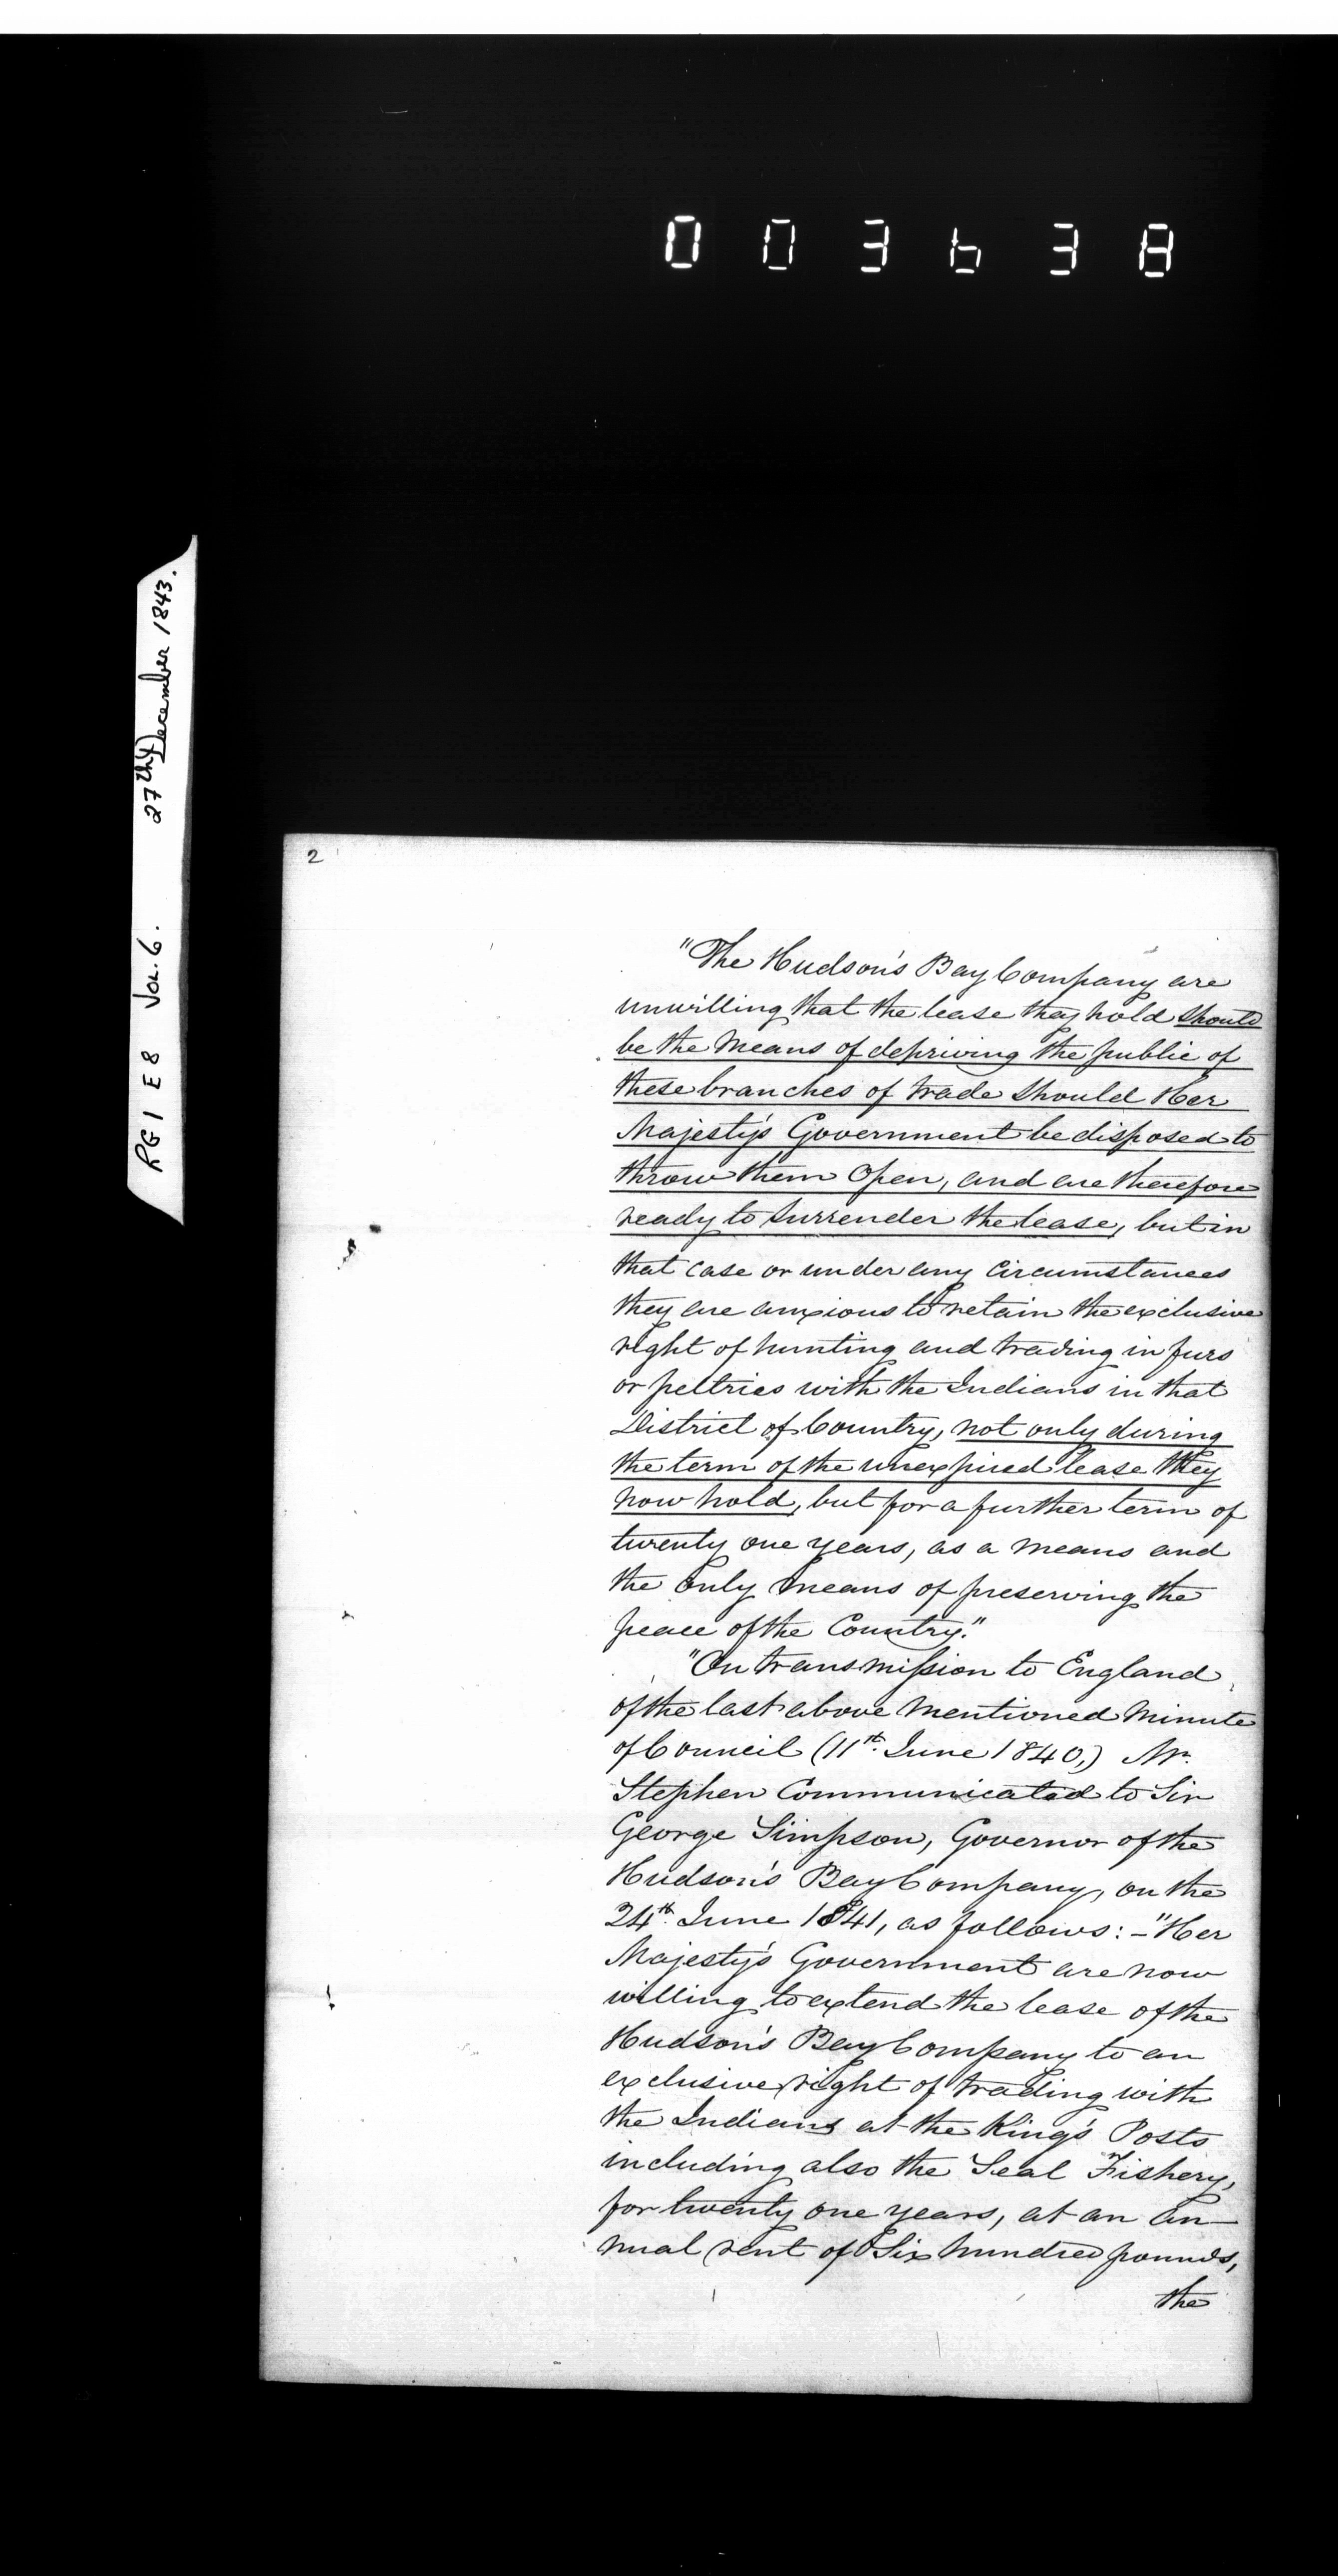 003638
RG1 E8 Vol. 6. 27th December 1843.
2
"The Hudson's Bay Company are
unwilling that the lease they hold should
be the means of depriving the public of
these branches of trade should Her
Majesty's Government be disposed to
throw them open, and are therefore
ready to surrender the lease, but in
that case or under any circumstances
they are anxious to retain the exclusive
right of hunting and trading in furs
or peltries with the Indians in that
District of Country, not only during
the term of the unexpired lease they
now hold, but for a further term of
twenty one years, as a means and
the only means of preserving the
peace of the Country."
"On transmission to England
of the last above mentioned Minute
of Council (11th. June 1840,) Mr.
Stephen Communicated to Sir
George Simpson, Governor of the
Hudson's Bay Company, on the
24th. June 1841, as follows: – "Her
Majesty's Government are now
willing to extend the lease of the
Hudson's Bay Company to an
exclusive right of trading with
the Indians at the King's Posts
including also the Seal Fishery,
for twenty one years, at an an-
nual rent of Six hundred pounds,
the